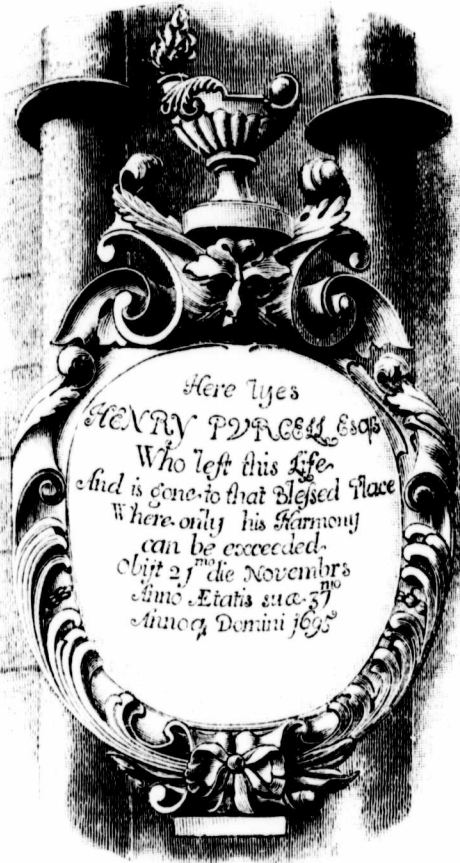 Here lyes
HENRY PVRCELL Esqr
Who left this Life
And is gone to that Blessed Place
Where only his Harmony
can be exceeded
Obijt 21mo die Novembrs
Anno Ætatis suæ 37mo
Annoq Domini 1695